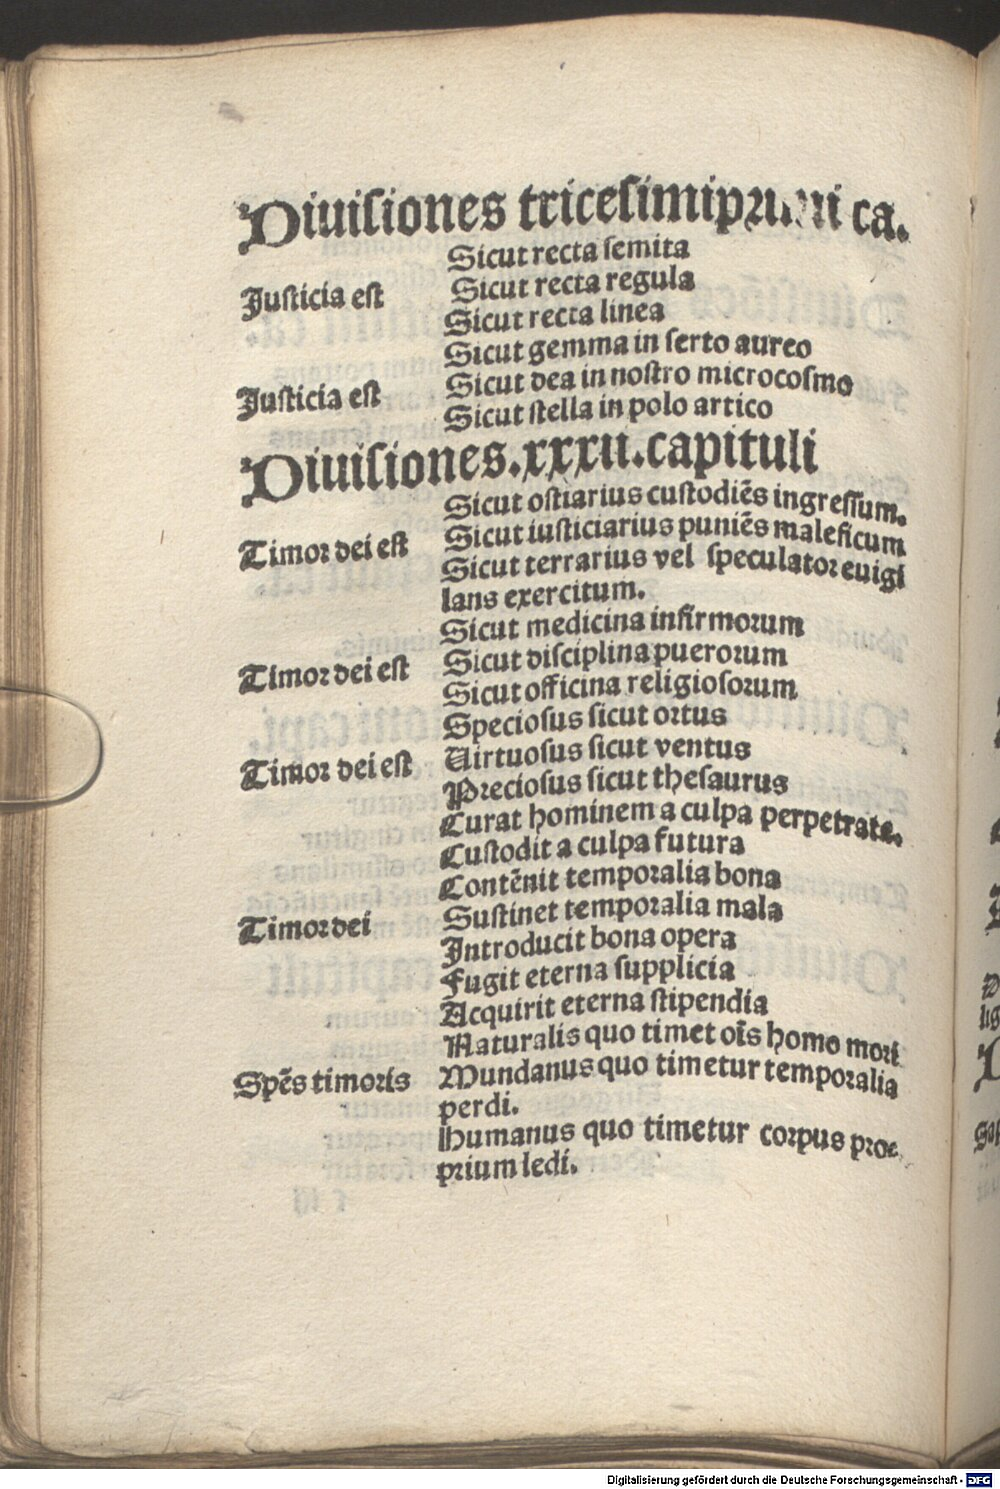 Diuisiones tricesimiprimi ca.
Sicut recta semita
Justicia est Sicut recta regula
Sicut recta linea
Sicut gemma in serto aureo
Justicia est Sicut dea in nostro microcosmo
Sicut stella in polo artico
Diuisiones.xxxii.capituli
Sicut ostiarius custodiēs ingressum.
Timor dei est Sicut iusticiarius puniēs maleficum
Sicut terrarius vel speculator euigi
lans exercitum.
Sicut medicina infirmorum
Timor dei est Sicut disciplina puerorum
Sicut officina religiosorum
Speciosus sicut ortus
Timor dei est Uirtuosus sicut ventus
Preciosus sicut thesaurus
Curat hominem a culpa perpetrate.
Custodit a culpa futura
Contēnit temporalia bona
Timor dei Sustinet temporalia mala
Introducit bona opera
Fugit eterna supplicia
Acquirit eterna stipendia
Naturalis quo timet oīs homo mori
Spēs timoris Mundanus quo timetur temporalia
perdi.
Humanus quo timetur corpus proe
prium ledi.
Digitalisierung gefördert durch die Deutsche Forschungsgemeinschaft - DFG